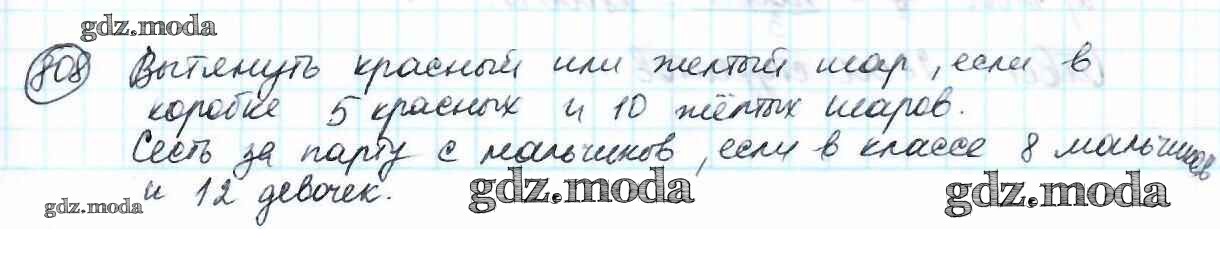 gdz.moda
808 Вытянуть красный или желтый шар, если в
коробке 5 красных и 10 жёлтых шаров.
Сесть за парту с мальчиков, если в классе 8 мальчиков
и 12 девочек.
gdz.moda gdz.moda gdz.moda